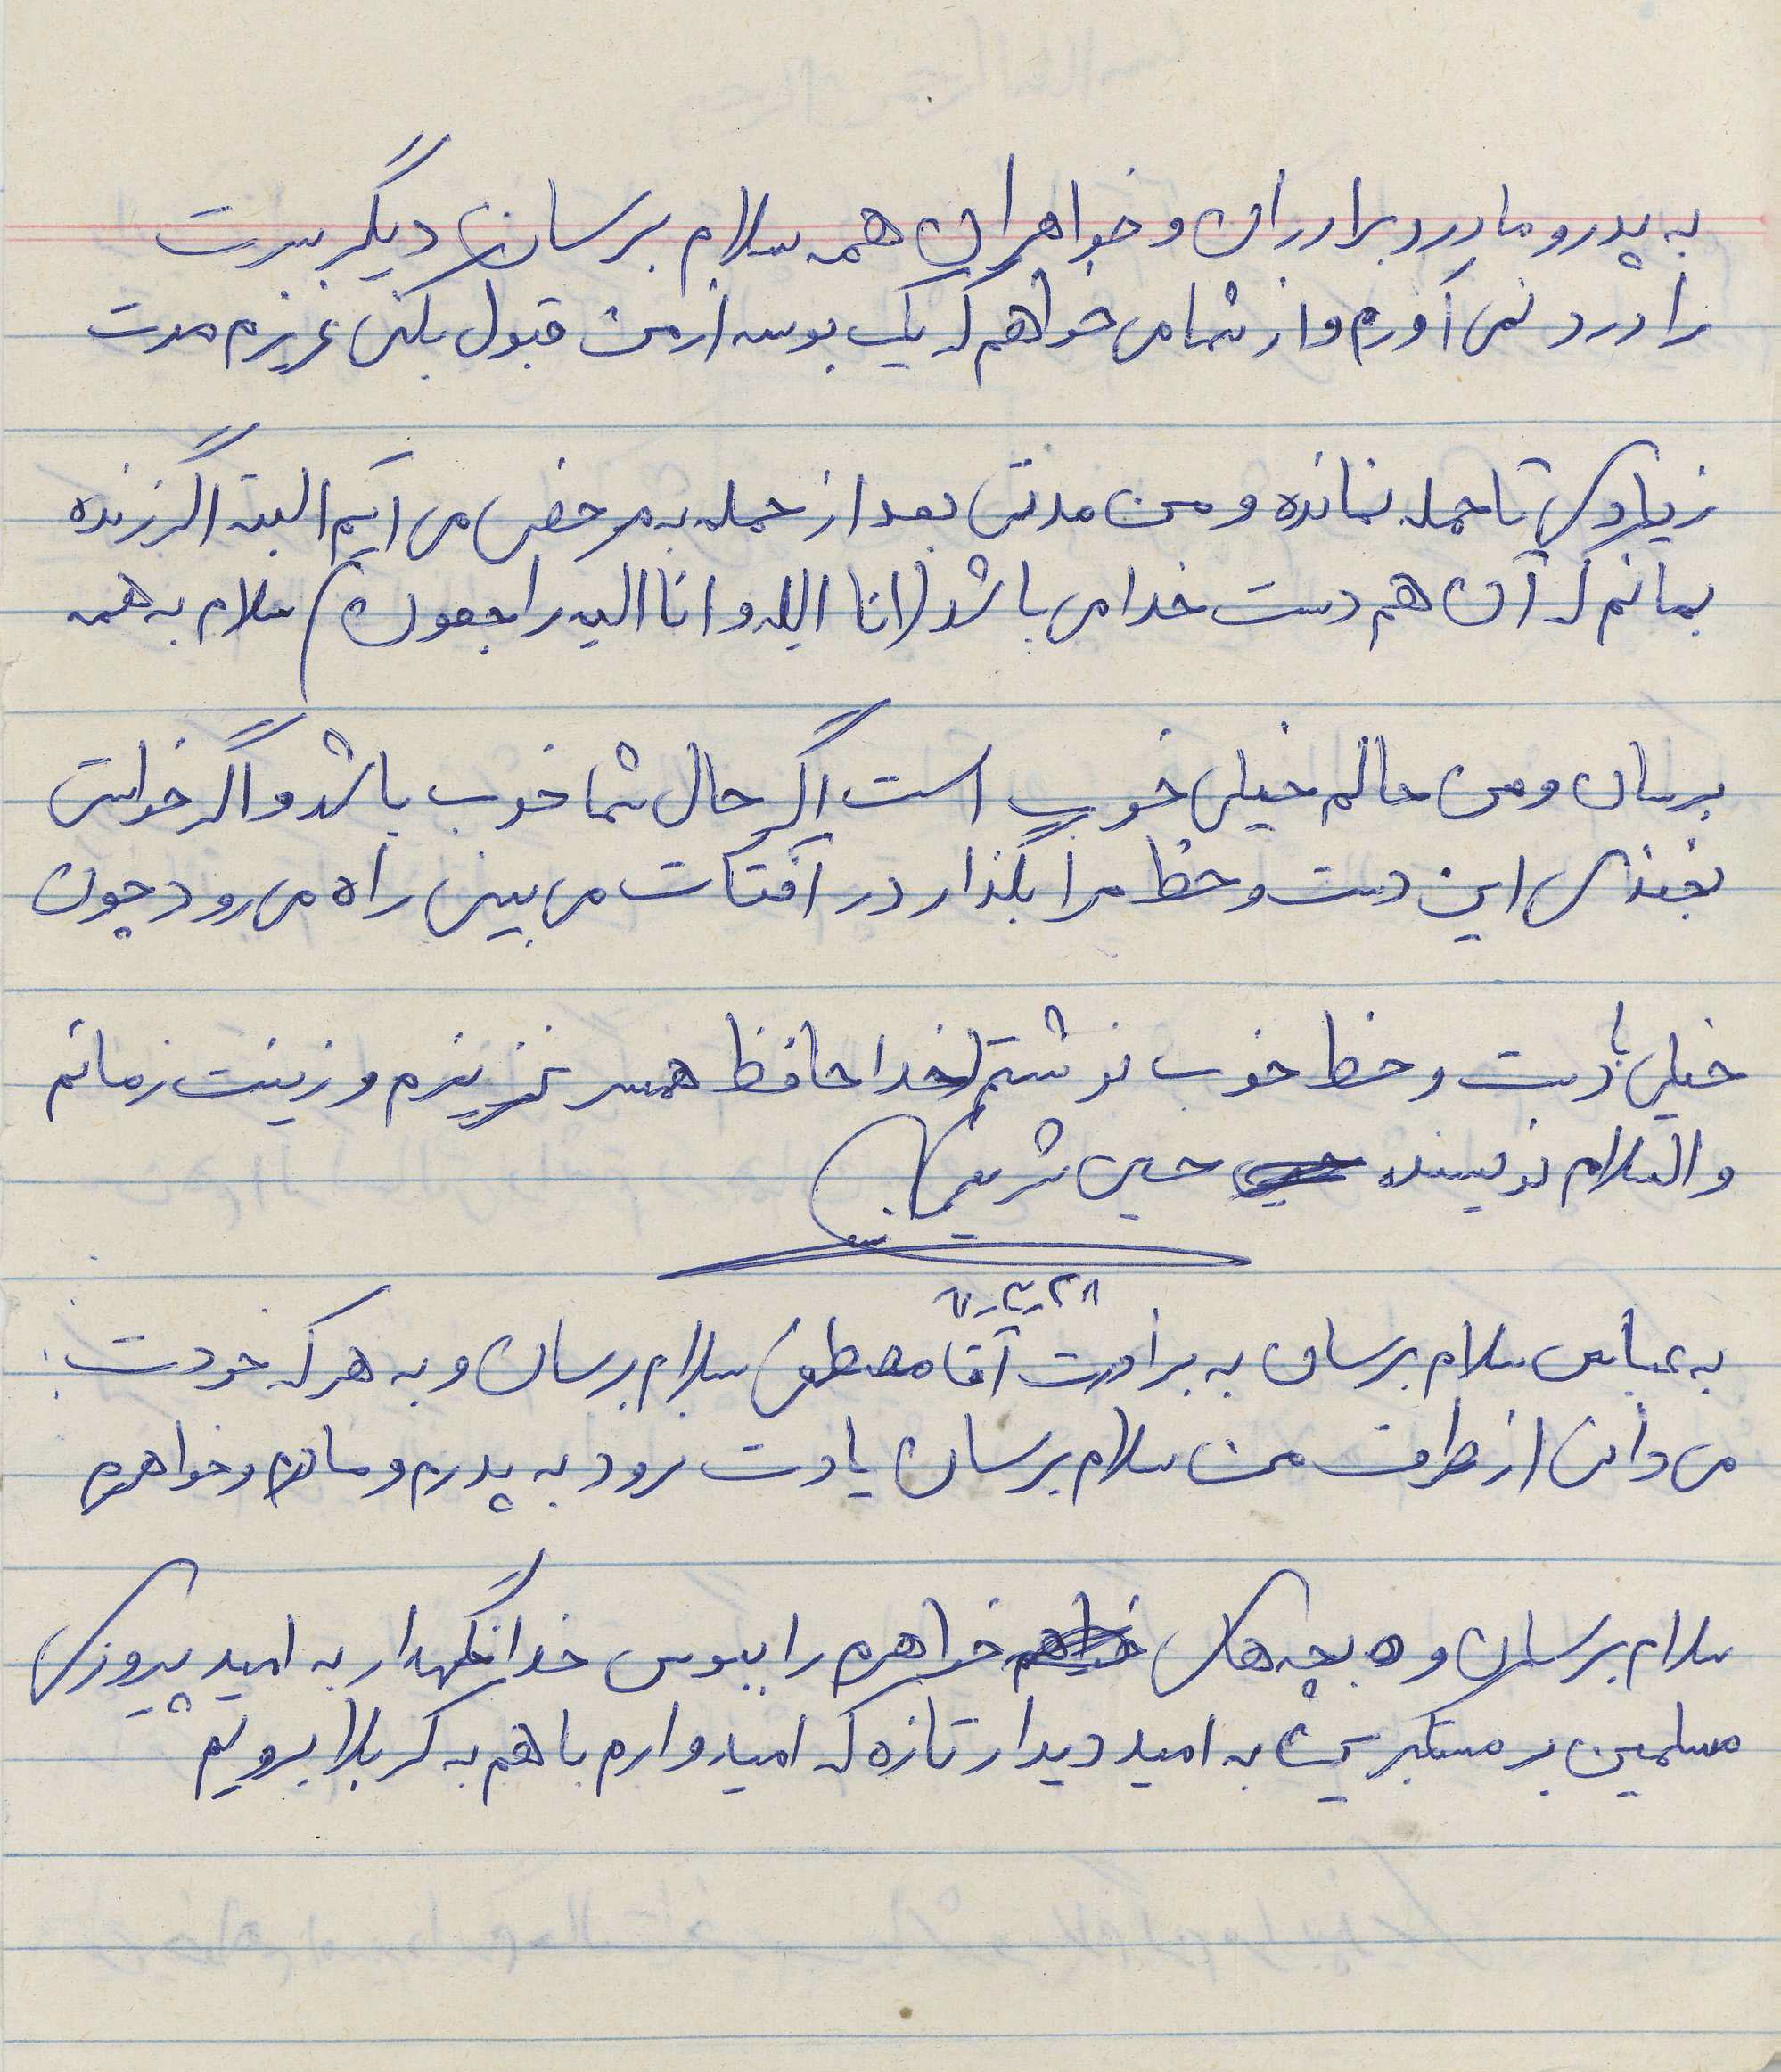 به پدر و مادر و برادران و خواهران همه سلام برسان دیگر سرت
را درد نمی آورم و از شما می خواهم که یک بوسه از من قبول بکنی عزیزم مدت
زیادی تا حمله نمانده و من مدتی بعد از حمله به مرخصی می آیم البته اگر زنده
بمانم که آن هم دست خدا می باشد (انا الله و انا الیه راجعون) سلام به همه
برسان و من حالم خیلی خوب است اگر حال شما خوب باشد و اگر خواستی
بخندی این دست و خط مرا بگذار در آفتاب می بینی راه می رود چون
خیلی با دست و خط خوب نوشتم خدا حافظ همسر عزیزم و زینت زمانم
و السلام نویسنده حسین
۲۸-۳-۶۱
به عباس سلام برسان به برادرت آقا مصطفی سلام برسان و به هر که خودت
می دانی از طرف من سلام برسان یادت نرود به پدرم و مادرم و خواهرم
سلام برسان و بچه های خواهرم را ببوس خدا نگهدار به امید پیروزی
مسلمین بر مستکبرین به امید دیدار تازه که امیدوارم با هم به کربلا برویم